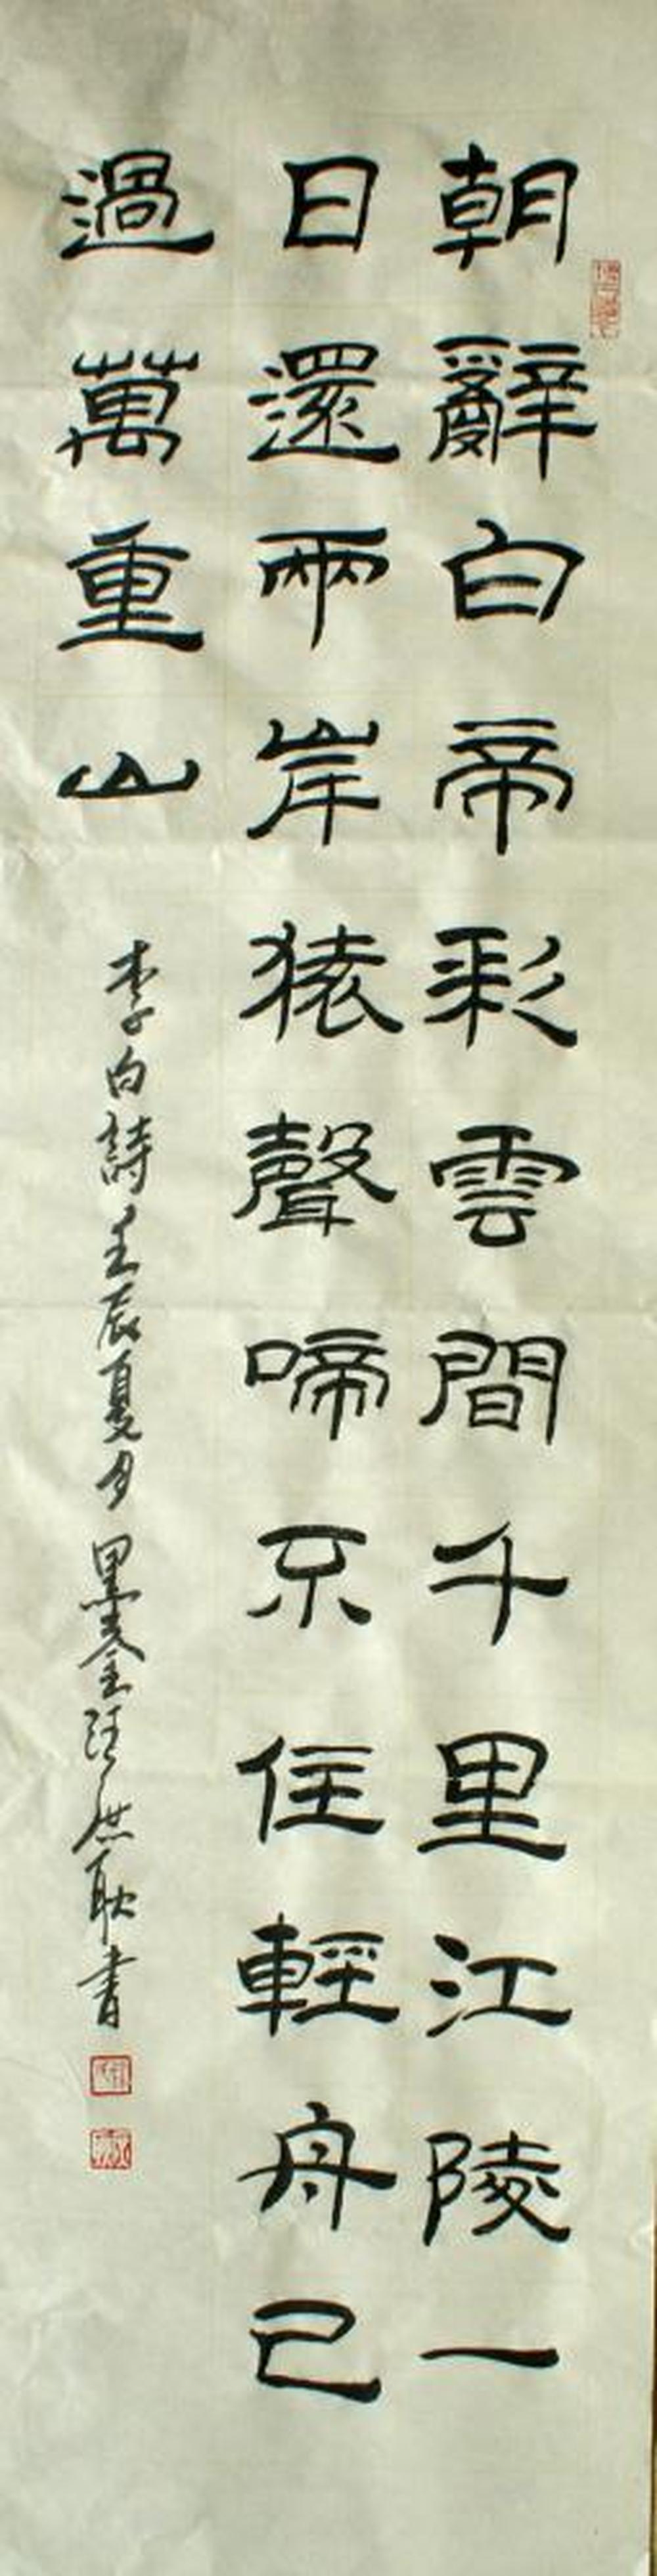 朝辭白帝彩雲間千里江陵一
日還兩岸猿聲啼不住輕舟已
過萬重山
李白詩壬辰夏月墨奎汪洪耿書